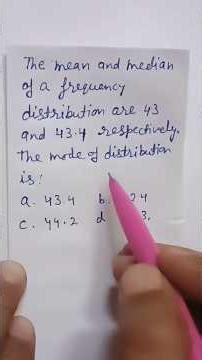 The mean and median
of a frequency
distribution are 43
and 43.4 respectively.
The mode of distribution
is:
a. 43.4 b.
c. 44.2 d